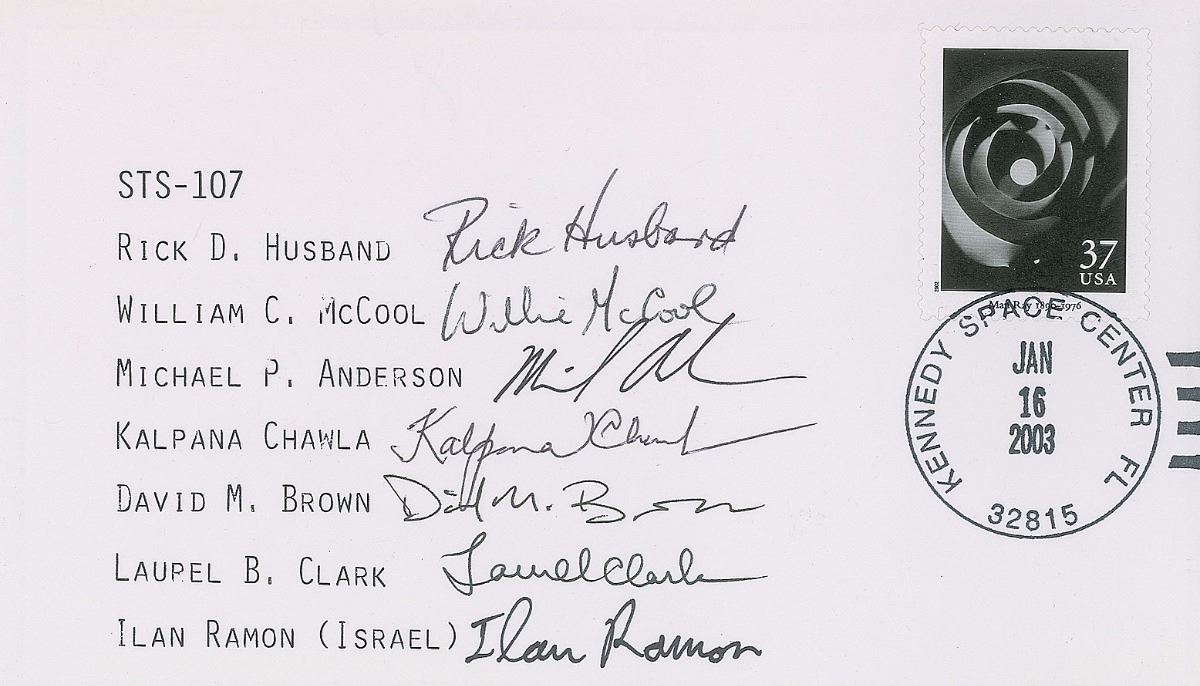 STS-107
RICK D. HUSBAND Rick Husband
WILLIAM C. MCCOOL Willie McCool
MICHAEL P. ANDERSON
KALPANA CHAWLA Kalpana Chawla
DAVID M. BROWN David M. Brown
LAUREL B. CLARK Laurel Clark
ILAN RAMON (ISRAEL) Ilan Ramon
37
USA
2002
Man Ray 1890-1976
KENNEDY SPACE CENTER FL
JAN
16
2003
32815